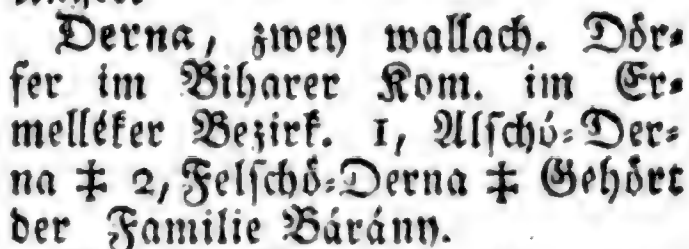 Derna, zwey wallach. Dör⸗
fer im Biharer Kom. im Er⸗
melléker Bezirk. 1, Alſchó⸗Der⸗
na ‡ 2, Felſchö⸗Derna ‡ Gehört
der Familie Bárány.